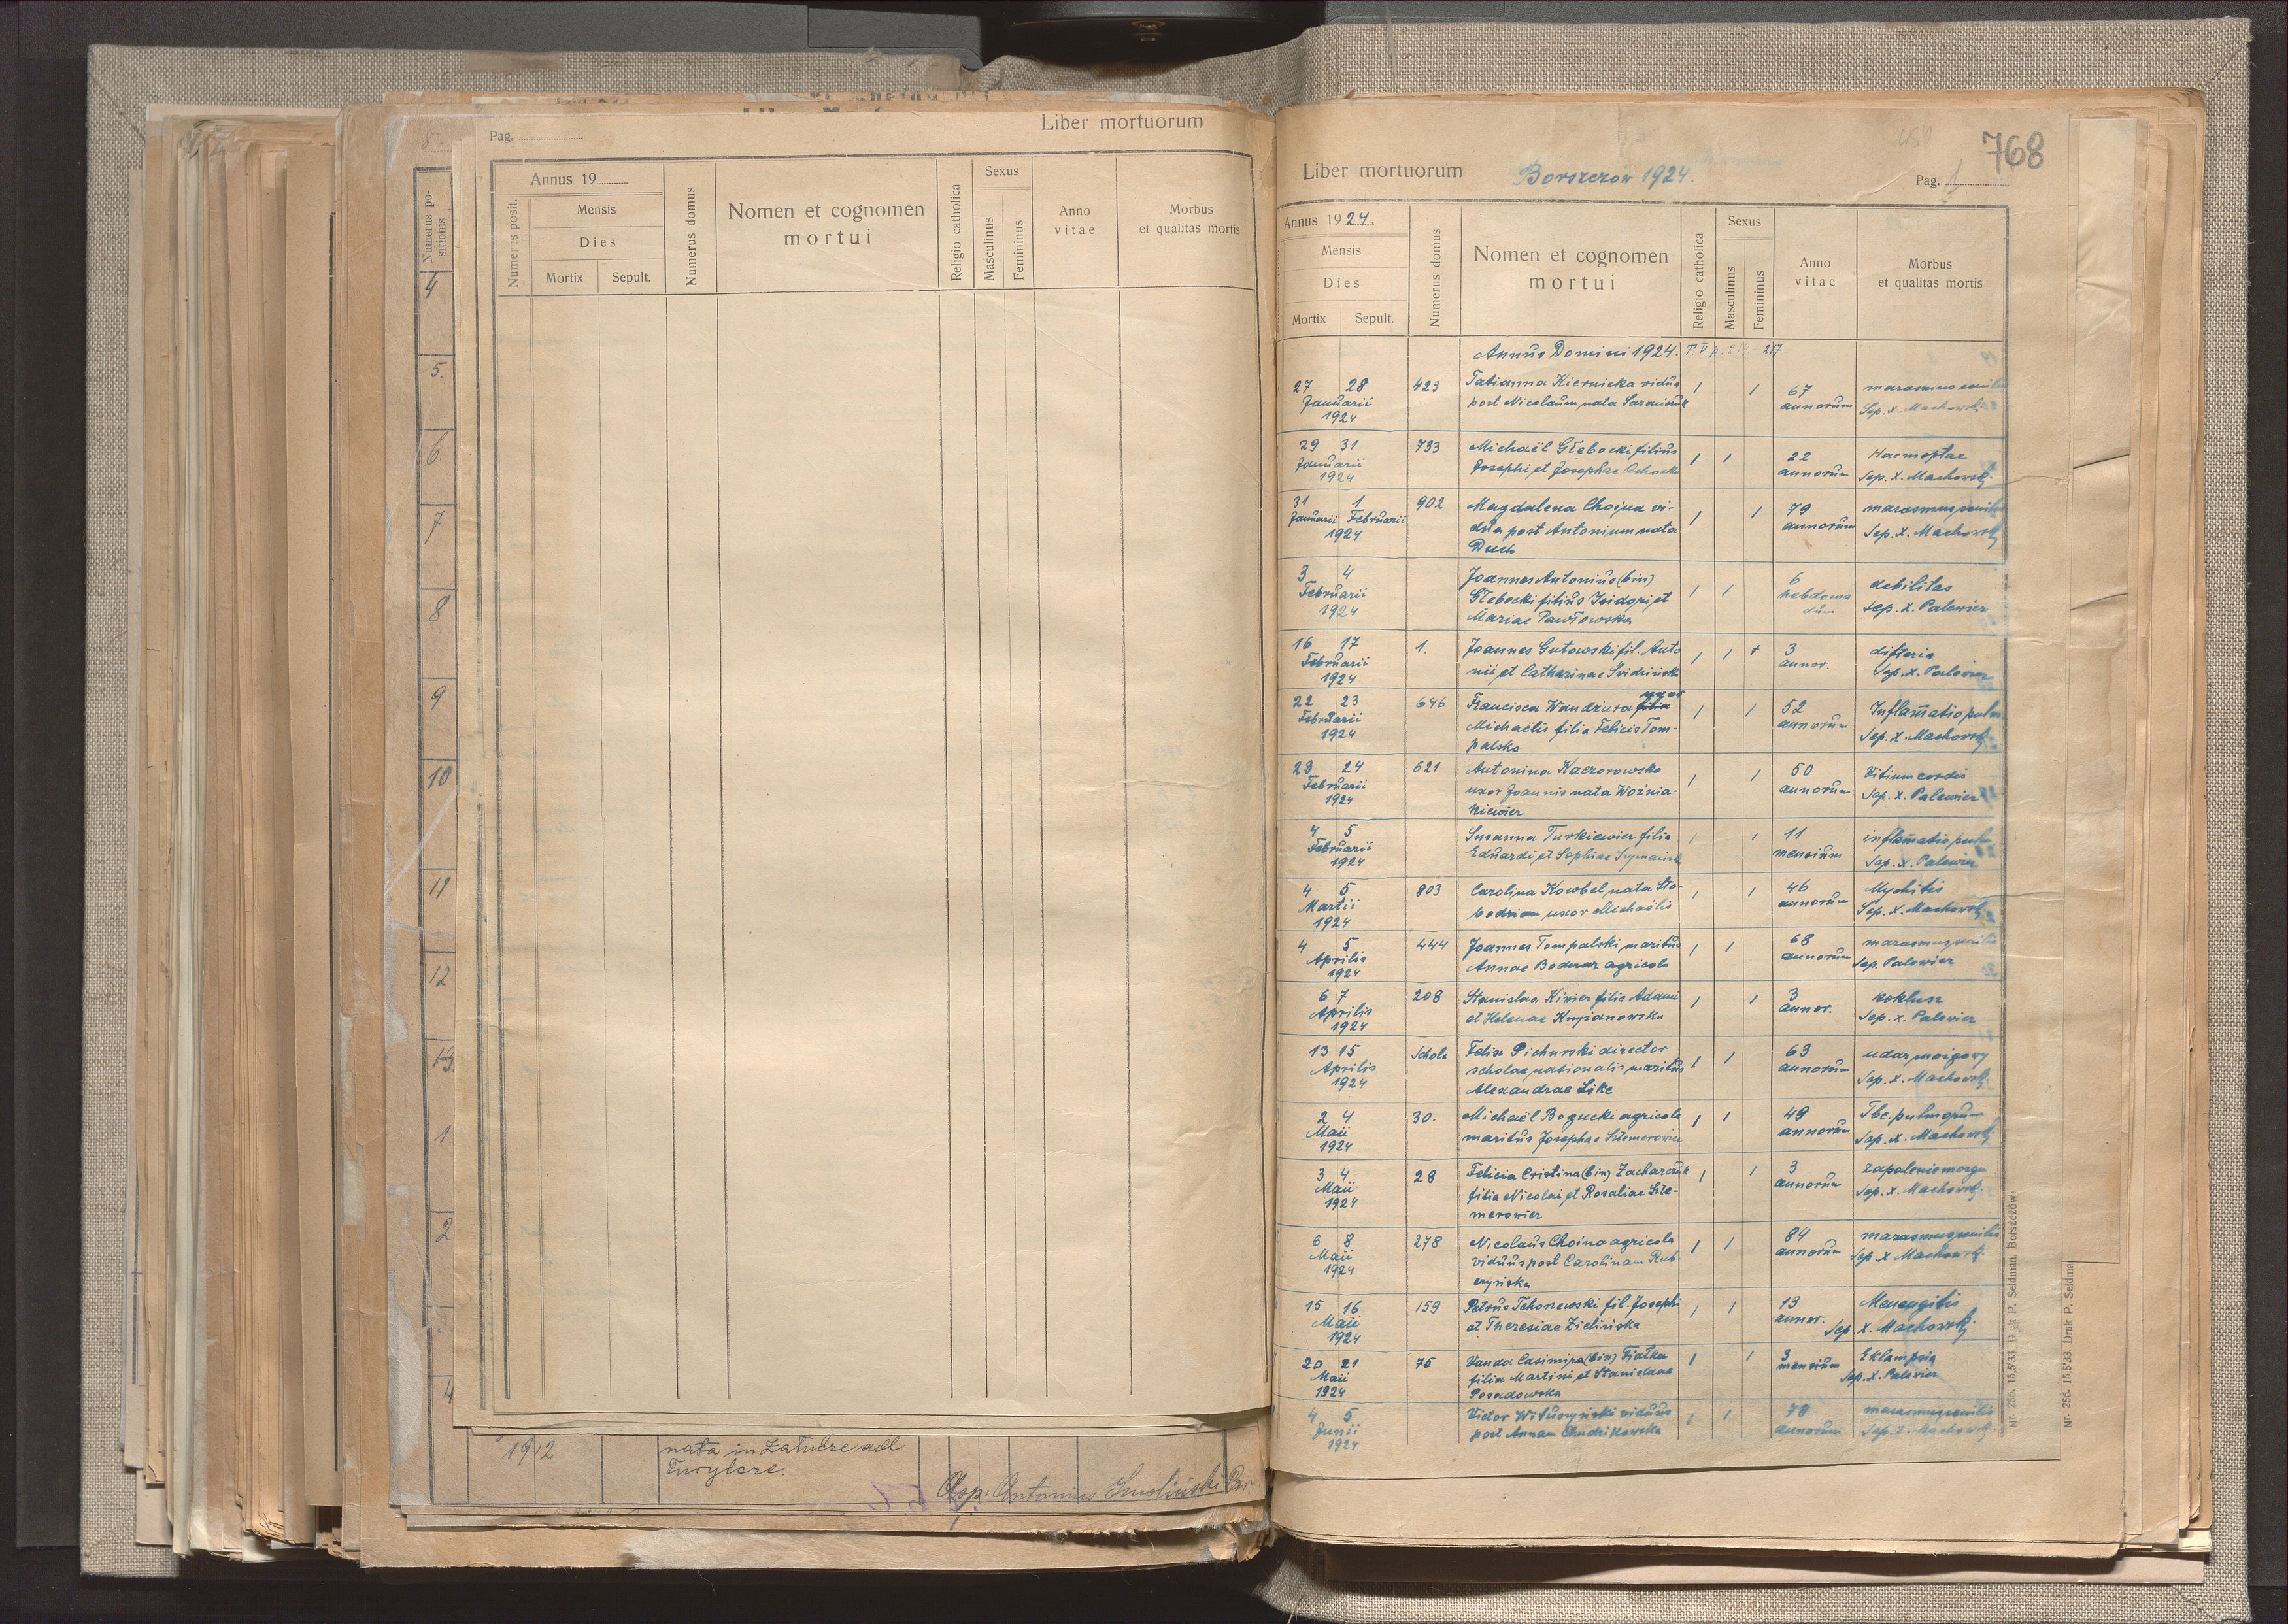 Pag.
Liber mortuorum
Annus 19
Numerus posit.
Mensis
Dies
Mortix
Sepult.
Numerus domus
Nomen et cognomen
mortui
Religio catholica
Sexus
Masculinus
Femininus
Anno
vitae
Morbus
et qualitas mortis
Numerus po-
sitionis
4
5.
6.
7
8
9
10
11
12
13.
1
2
4
1912
nata in
Asp: Antonius Smoliński
768
Liber mortuorum
Borszczów 1924.
Pag. 1.
Annus 1924.
Mensis
Dies
Mortix
Sepult.
Numerus domus
Nomen et cognomen
mortui
Religio catholica
Sexus
Masculinus
Femininus
Anno
vitae
Morbus
et qualitas mortis
Annus Domini 1924.
27 28 423 Tatianna Kiernicka vidua 1 1 67 marasmus senilis
Januarii post Nicolaum nata annorum Sep. x. Machowski
1924
29 31 733 Michaël Głębocki filius 1 1 22 Haemoptae
Januarii Josephi et Josephae annorum Sep. x. Machowski
1924
31 1 902 Magdalena Choina vi- 1 1 79 marasmus senilis
Januarii Februarii dua post Antonium nata annorum Sep. x. Machowski
1924 Duch
3 4 Joannes Antonius (bin) 1 1 6 debilitas
Februarii Głębocki filius Isidori et hebdoma Sep. x. Palewicz
1924 Mariae Pawłowska dum
16 17 1. Joannes Gutowski fil. Anto 1 1 3 difteria
Februarii nii et Catharinae annor. Sep. x. Palewicz
1924
22 23 646 Francisca Wandzura uxor 1 1 52 Inflamatio pulm.
Februarii Michaëlis filia Felicis Tom- annorum Sep. x. Machowski
1924 palska
23 24 621 Antonina Kaczorowska 1 1 50 Vitium cordis
Februarii uxor Joannis nata Woźnia- annorum Sep. x. Palewicz
1924 kiewicz
4 5 Susanna Turkiewicz filia 1 1 11 inflamatio pulm.
Februarii Eduardi et Sophiae mensium Sep. x. Palewicz
1924
4 5 803 Carolina Kowbel nata Sło- 1 1 46
Martii bodzian uxor Michaëlis annorum Sep. x. Machowski
1924
4 5 444 Joannes Tompalski maritus 1 1 68 marasmus senilis
Aprilis Annae Bodnar agricola annorum Sep. Palewicz
1924
6 7 208 Stanislaa Kiwicz filia Adami 1 1 3 koklusz
Aprilis et Helenae annor. Sep. x. Palewicz
1924
13 15 Schola Felix Pichurski director 1 1 63 udar mózgowy
Aprilis scholae nationalis maritus annorum Sep. x. Machowski
1924 Alexandrae Like
2 4 30. Michaël Bogucki agricola 1 1 49 Tbc. pulmonum
Maii maritus Josephae Szlemerowicz annorum Sep. x. Machowski
1924
3 4 28 Felicia Cristina (bin) Zacharczuk 1 1 3 zapalenie mózgu
Maii filia Nicolai et Rosaliae Szle- annorum Sep. x. Machowski
1924 merowicz
6 8 278 Nicolaus Choina agricola 1 1 84 marasmus senilis
Maii viduus post Carolinam Rub- annorum Sep. x Machowski
1924 czyńska
15 16 159 Petrus Tchorzewski fil. Josephi 1 1 13 Menengitis
Maii et Theresiae Zielińska annor. Sep. x. Machowski
1924
20 21 75 Vanda Casimira (bin) Fiałka 1 1 3 Eklampsia
Maii filia Martini et Stanislaae mensium Sep. x. Palewicz
1924 Posadowska
4 5 Victor viduus 1 1 78 marasmus senilis
Junii post Annam Chudzikowska annorum Sep. x. Machowski
1924
Nr. 256. 15,5'33. Druk P. Seidman, Borszczów.
Nr. 256. 15,5'33. Druk P. Seidma